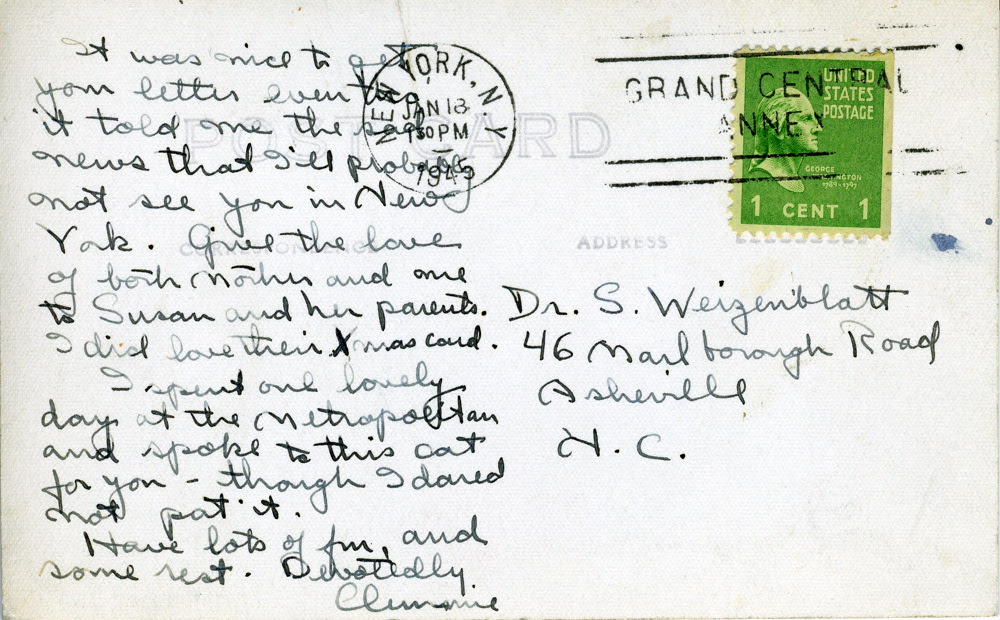 It was nice to get
your letter even tho
it told me the sad
news that I'll probably
not see you in New
York. Give the love
of both mother and me
to Susan and her parents.
I did love their Xmas card.
I spent one lovely
day at the Metropolitan
and spoke to this cat
for you - though I dared
not pat it.
Have lots of fun, and
some rest. Devotedly
NEW YORK, N.Y.
JAN 18
30 PM
1945
GRAND CENTRAL
ANNEX
UNITED
STATES
POSTAGE
GEORGE
WASHINGTON
1789-1797
1 CENT 1
POST CARD
CORRESPONDENCE
ADDRESS
Dr. S. Weizenblatt
46 Marlborough Road
Asheville
N. C.